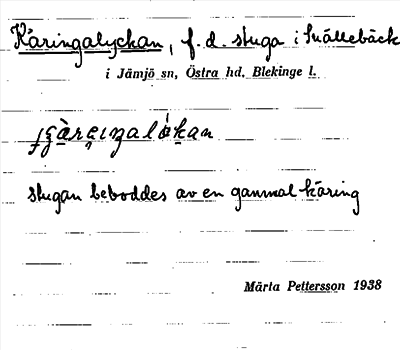 Käringalyckan, f. d. stuga i Snällebäck
i Jämjö sn, Östra hd, Blekinge l.
stugan beboddes av en gammal käring
Märta Pettersson 1938